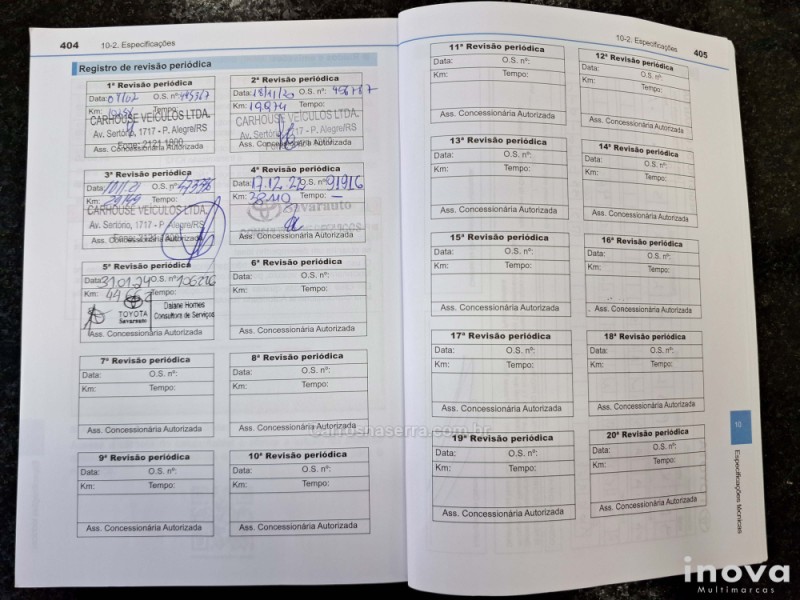 404 10-2. Especificações
Registro de revisão periódica
1ª Revisão periódica
Data: O.S. nº:
Km: Tempo:
CARHOUSE VEÍCULOS LTDA.
Av. Sertório, 1717 - P. Alegre/RS
Ass. Concessionária Autorizada
2ª Revisão periódica
Data: O.S. nº:
Km: Tempo:
CARHOUSE VEÍCULOS LTDA.
Av. Sertório, 1717 - P. Alegre/RS
Ass. Concessionária Autorizada
3ª Revisão periódica
Data: O.S. nº:
Km: Tempo:
CARHOUSE VEÍCULOS LTDA.
Av. Sertório, 1717 - P. Alegre/RS
Ass. Concessionária Autorizada
4ª Revisão periódica
Data: 17.12.22 O.S. nº: 91916
Km: Tempo: —
Savarauto
Ass. Concessionária Autorizada
5ª Revisão periódica
Data: 31.01.24 O.S. nº: 106226
Km: Tempo:
TOYOTA
Savarauto
Daiane Homes
Consultora de Serviços
Ass. Concessionária Autorizada
6ª Revisão periódica
Data: O.S. nº:
Km: Tempo:
Ass. Concessionária Autorizada
7ª Revisão periódica
Data: O.S. nº:
Km: Tempo:
Ass. Concessionária Autorizada
8ª Revisão periódica
Data: O.S. nº:
Km: Tempo:
Ass. Concessionária Autorizada
9ª Revisão periódica
Data: O.S. nº:
Km: Tempo:
Ass. Concessionária Autorizada
10ª Revisão periódica
Data: O.S. nº:
Km: Tempo:
Ass. Concessionária Autorizada
10-2. Especificações 405
11ª Revisão periódica
Data: O.S. nº:
Km: Tempo:
Ass. Concessionária Autorizada
12ª Revisão periódica
Data: O.S. nº:
Km: Tempo:
Ass. Concessionária Autorizada
13ª Revisão periódica
Data: O.S. nº:
Km: Tempo:
Ass. Concessionária Autorizada
14ª Revisão periódica
Data: O.S. nº:
Km: Tempo:
Ass. Concessionária Autorizada
15ª Revisão periódica
Data: O.S. nº:
Km: Tempo:
Ass. Concessionária Autorizada
16ª Revisão periódica
Data: O.S. nº:
Km: Tempo:
Ass. Concessionária Autorizada
17ª Revisão periódica
Data: O.S. nº:
Km: Tempo:
Ass. Concessionária Autorizada
18ª Revisão periódica
Data: O.S. nº:
Km: Tempo:
Ass. Concessionária Autorizada
19ª Revisão periódica
Data: O.S. nº:
Km: Tempo:
Ass. Concessionária Autorizada
20ª Revisão periódica
Data: O.S. nº:
Km: Tempo:
Ass. Concessionária Autorizada
10
Especificações técnicas
carrosnaserra.com.br
inova
Multimarcas